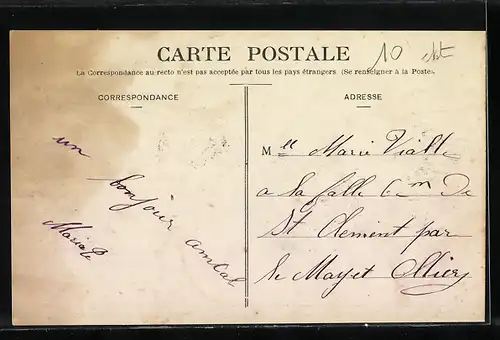 CARTE POSTALE
10
La Correspondance au recto n'est pas acceptée par tous les pays étrangers. (Se renseigner à la Poste).
CORRESPONDANCE
un
bonjour amical
Maria
ADRESSE
Mlle Marie Vialle
a la
de
St Clement par
le Mayet Allier